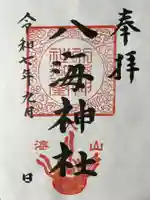 奉拝
八海神社
令和七年九月 日